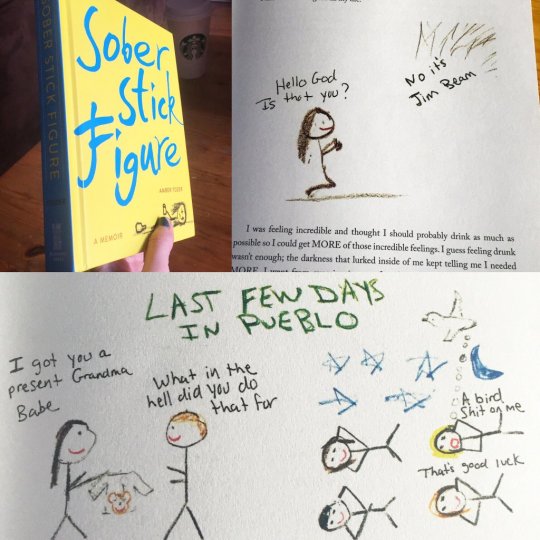 SOBER STICK FIGURE
Sober
Stick
Figure
AMBER TOZER
A MEMOIR
Hello God
Is that you?
No it's
Jim Beam
I was feeling incredible and thought I should probably drink as much as
possible so I could get MORE of those incredible feelings. I guess feeling drunk
wasn't enough; the darkness that lurked inside of me kept telling me I needed
MORE. I went from
LAST FEW DAYS
IN PUEBLO
I got you a
present Grandma
Babe
What in the
hell did you do
that for
A bird
Shit on me
That's good luck